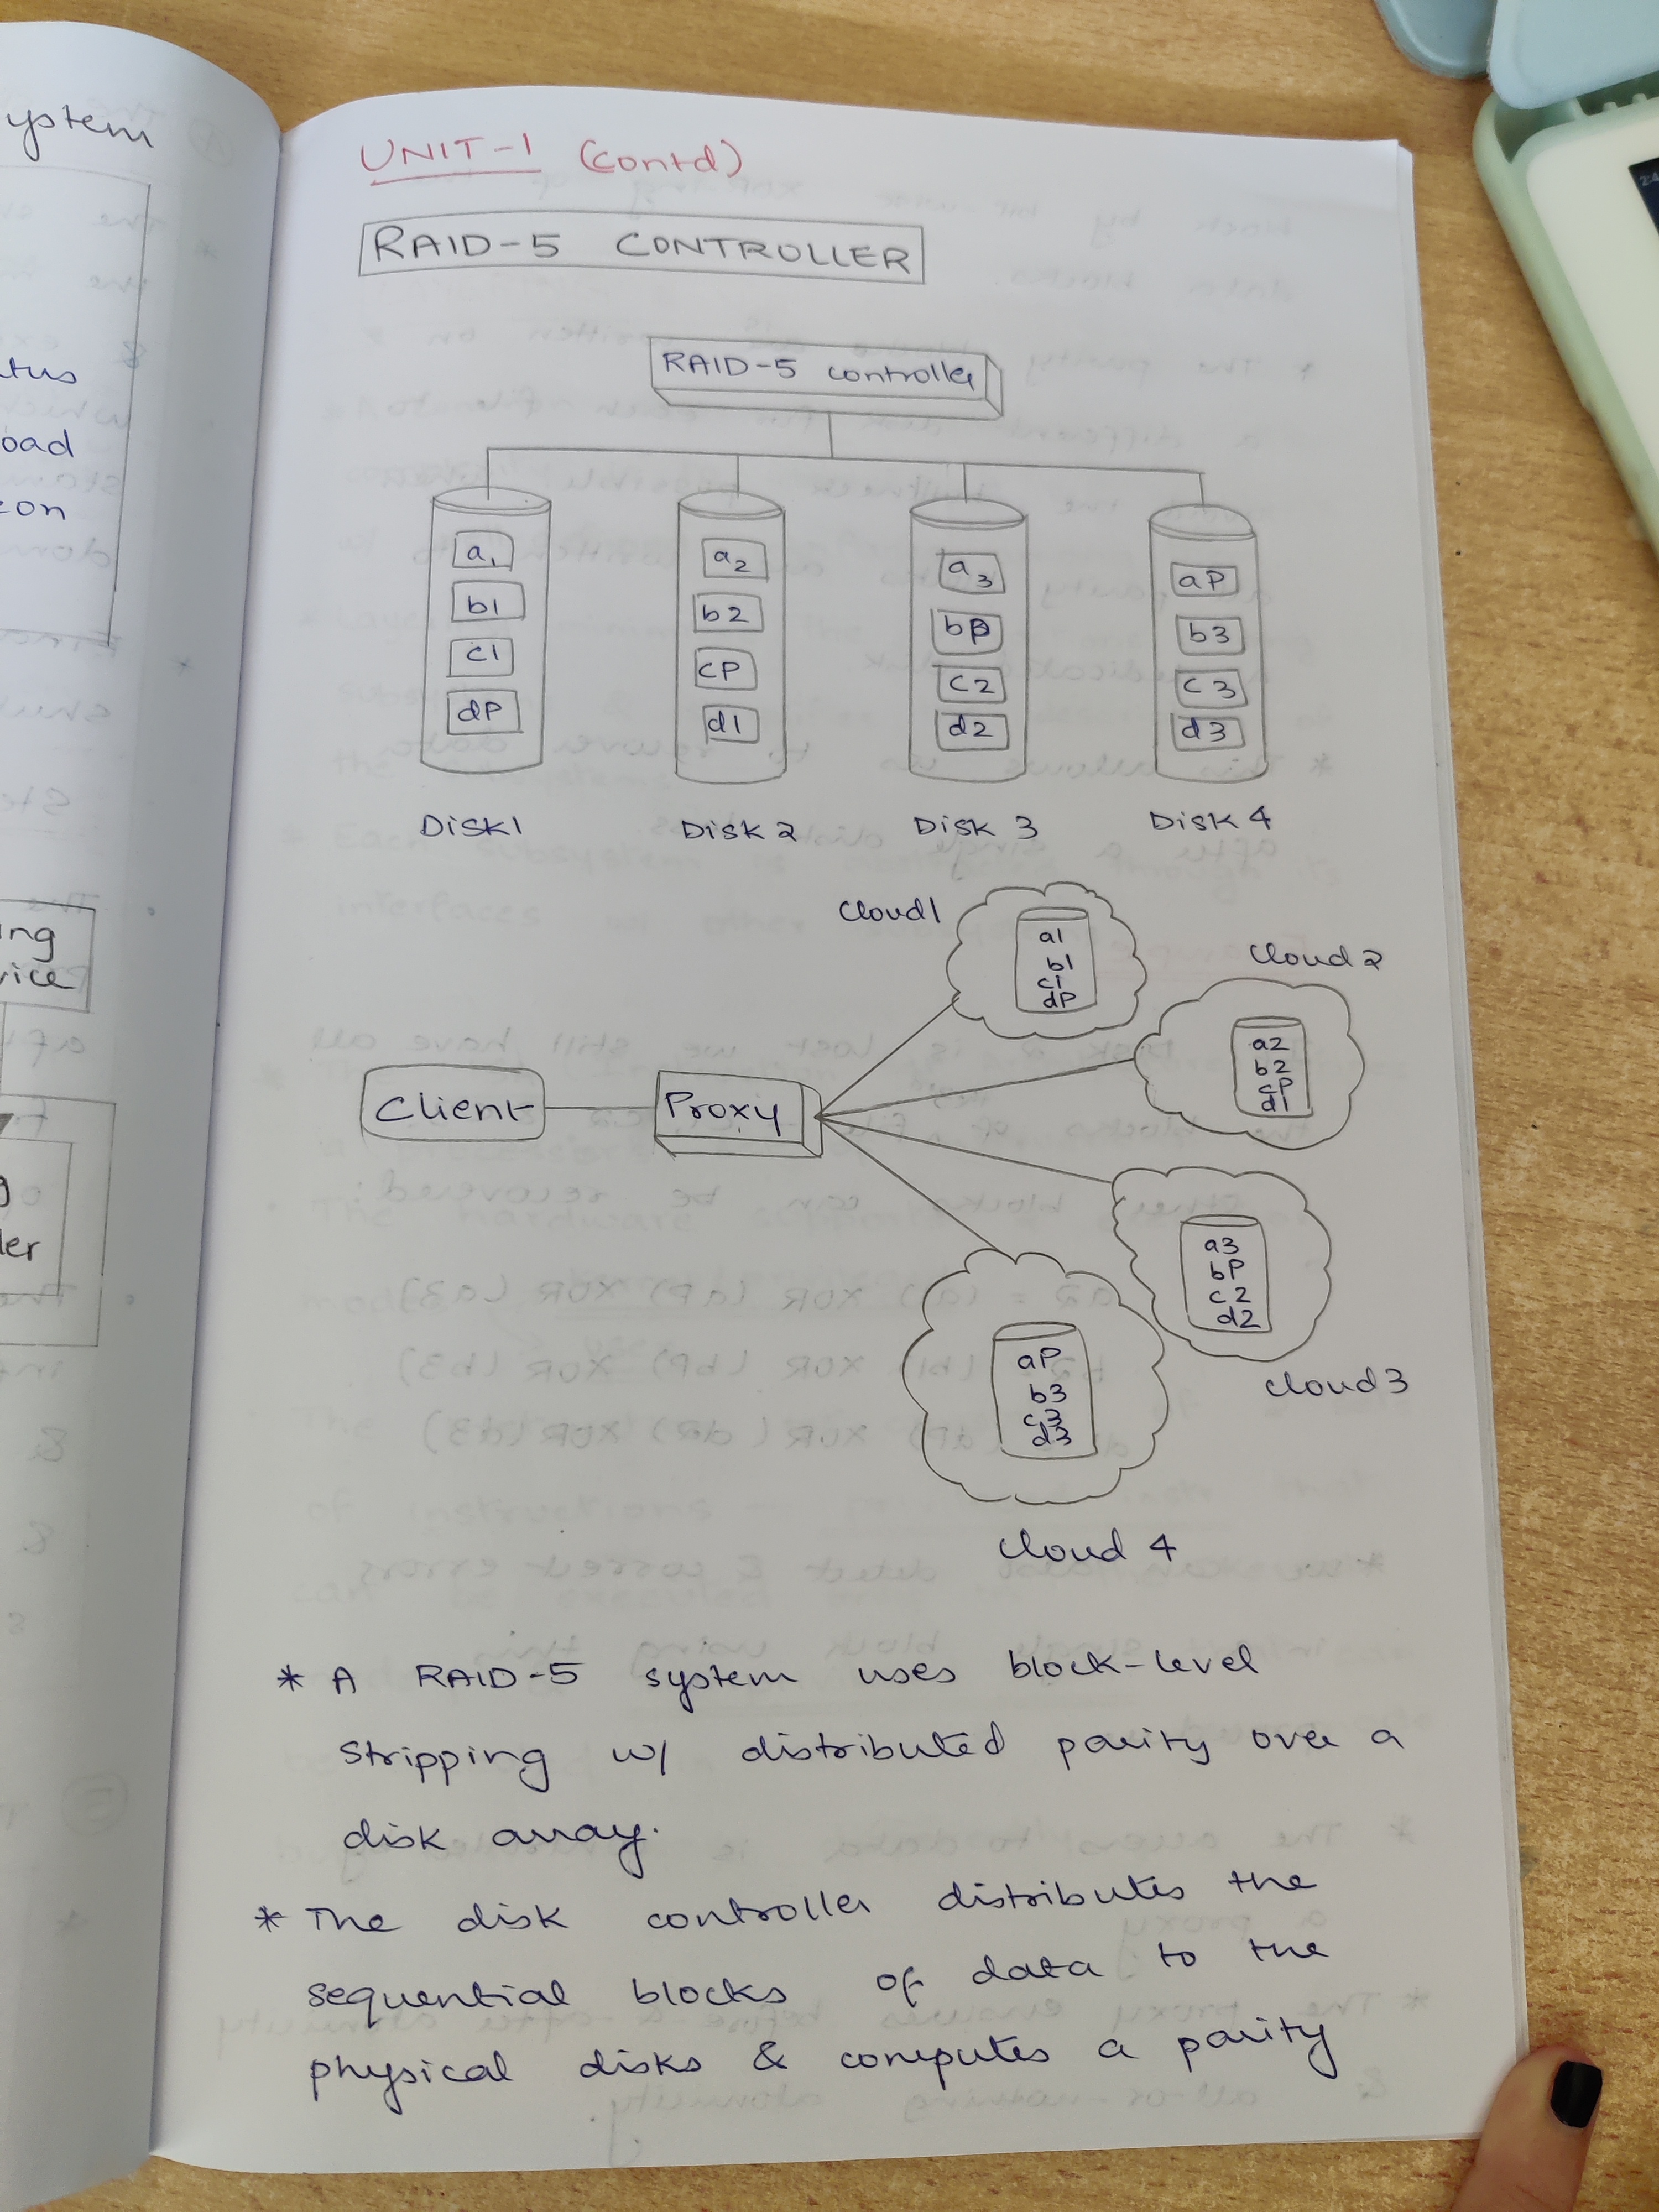 ystem
tus
oad
con
ing
vice
g
ler
UNIT-1 (contd)
RAID-5 CONTROLLER
RAID-5 controller
a1 a2 a3 aP
b1 b2 bP b3
c1 cP c2 c3
dP d1 d2 d3
Disk1 Disk 2 Disk 3 Disk 4
Cloud1
a1
b1
c1
dP
Cloud 2
a2
b2
cP
d1
Client
Proxy
a3
bP
c2
d2
Cloud3
aP
b3
c3
d3
Cloud 4
* A RAID-5 system uses block-level
stripping w/ distributed parity over a
disk array.
* The disk controller distributes the
sequential blocks of data to the
physical disks & computes a parity